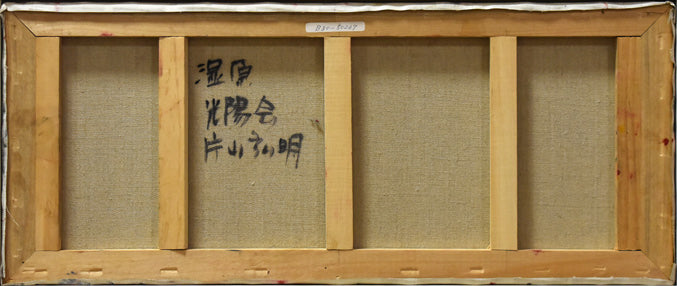 B30-50267
湿原
光陽会
片山弘明